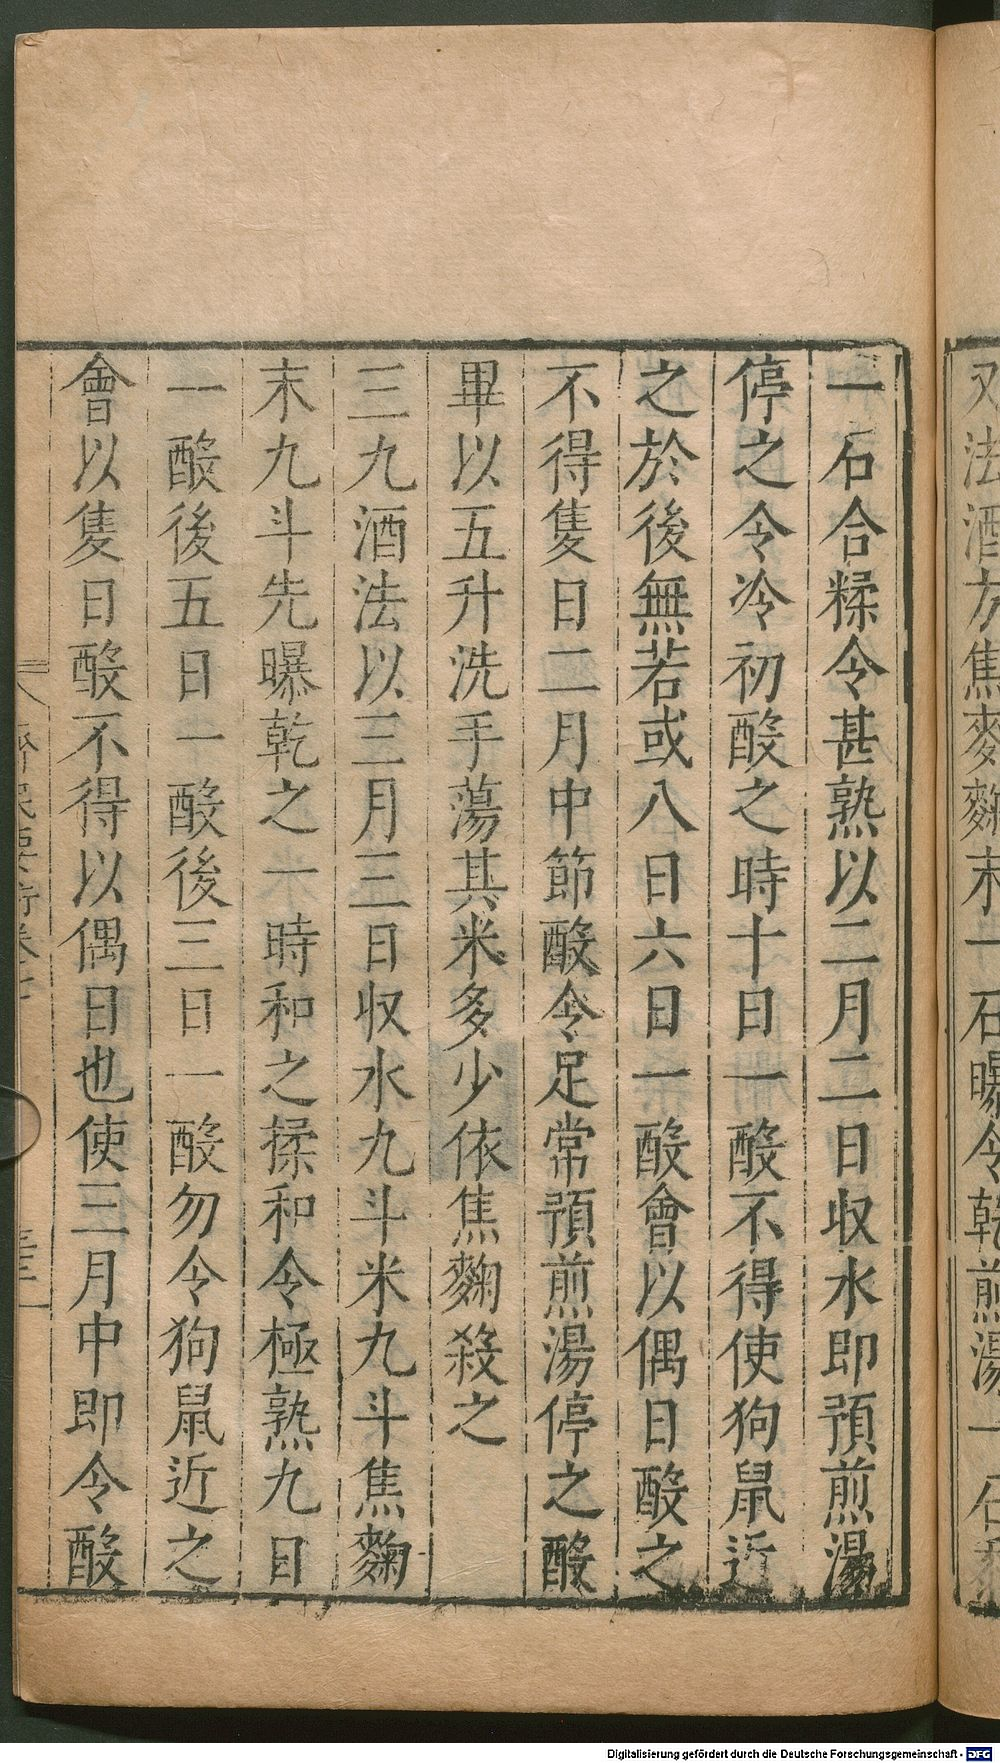 又法酒方焦麥麴末一石曝令乾煎湯一石黍
一石合糅令甚熟以二月二日収水即預煎湯
停之令冷初酘之時十日一酘不得使狗鼠近
之於後無若或八日六日一酘會以偶日酘之
不得隻日二月中節酘令足常預煎湯停之酘
畢以五升洗手蕩其米多少依焦麴殺之
三九酒法以三月三日収水九斗米九斗焦麴
末九斗先曝乾之一時和之揉和令極熟九日
一酘後五日一酘後三日一酘勿令狗鼠近之
會以隻日酘不得以偶日也使三月中即令酘
齊民要術卷七
Digitalisierung gefördert durch die Deutsche Forschungsgemeinschaft - DFG